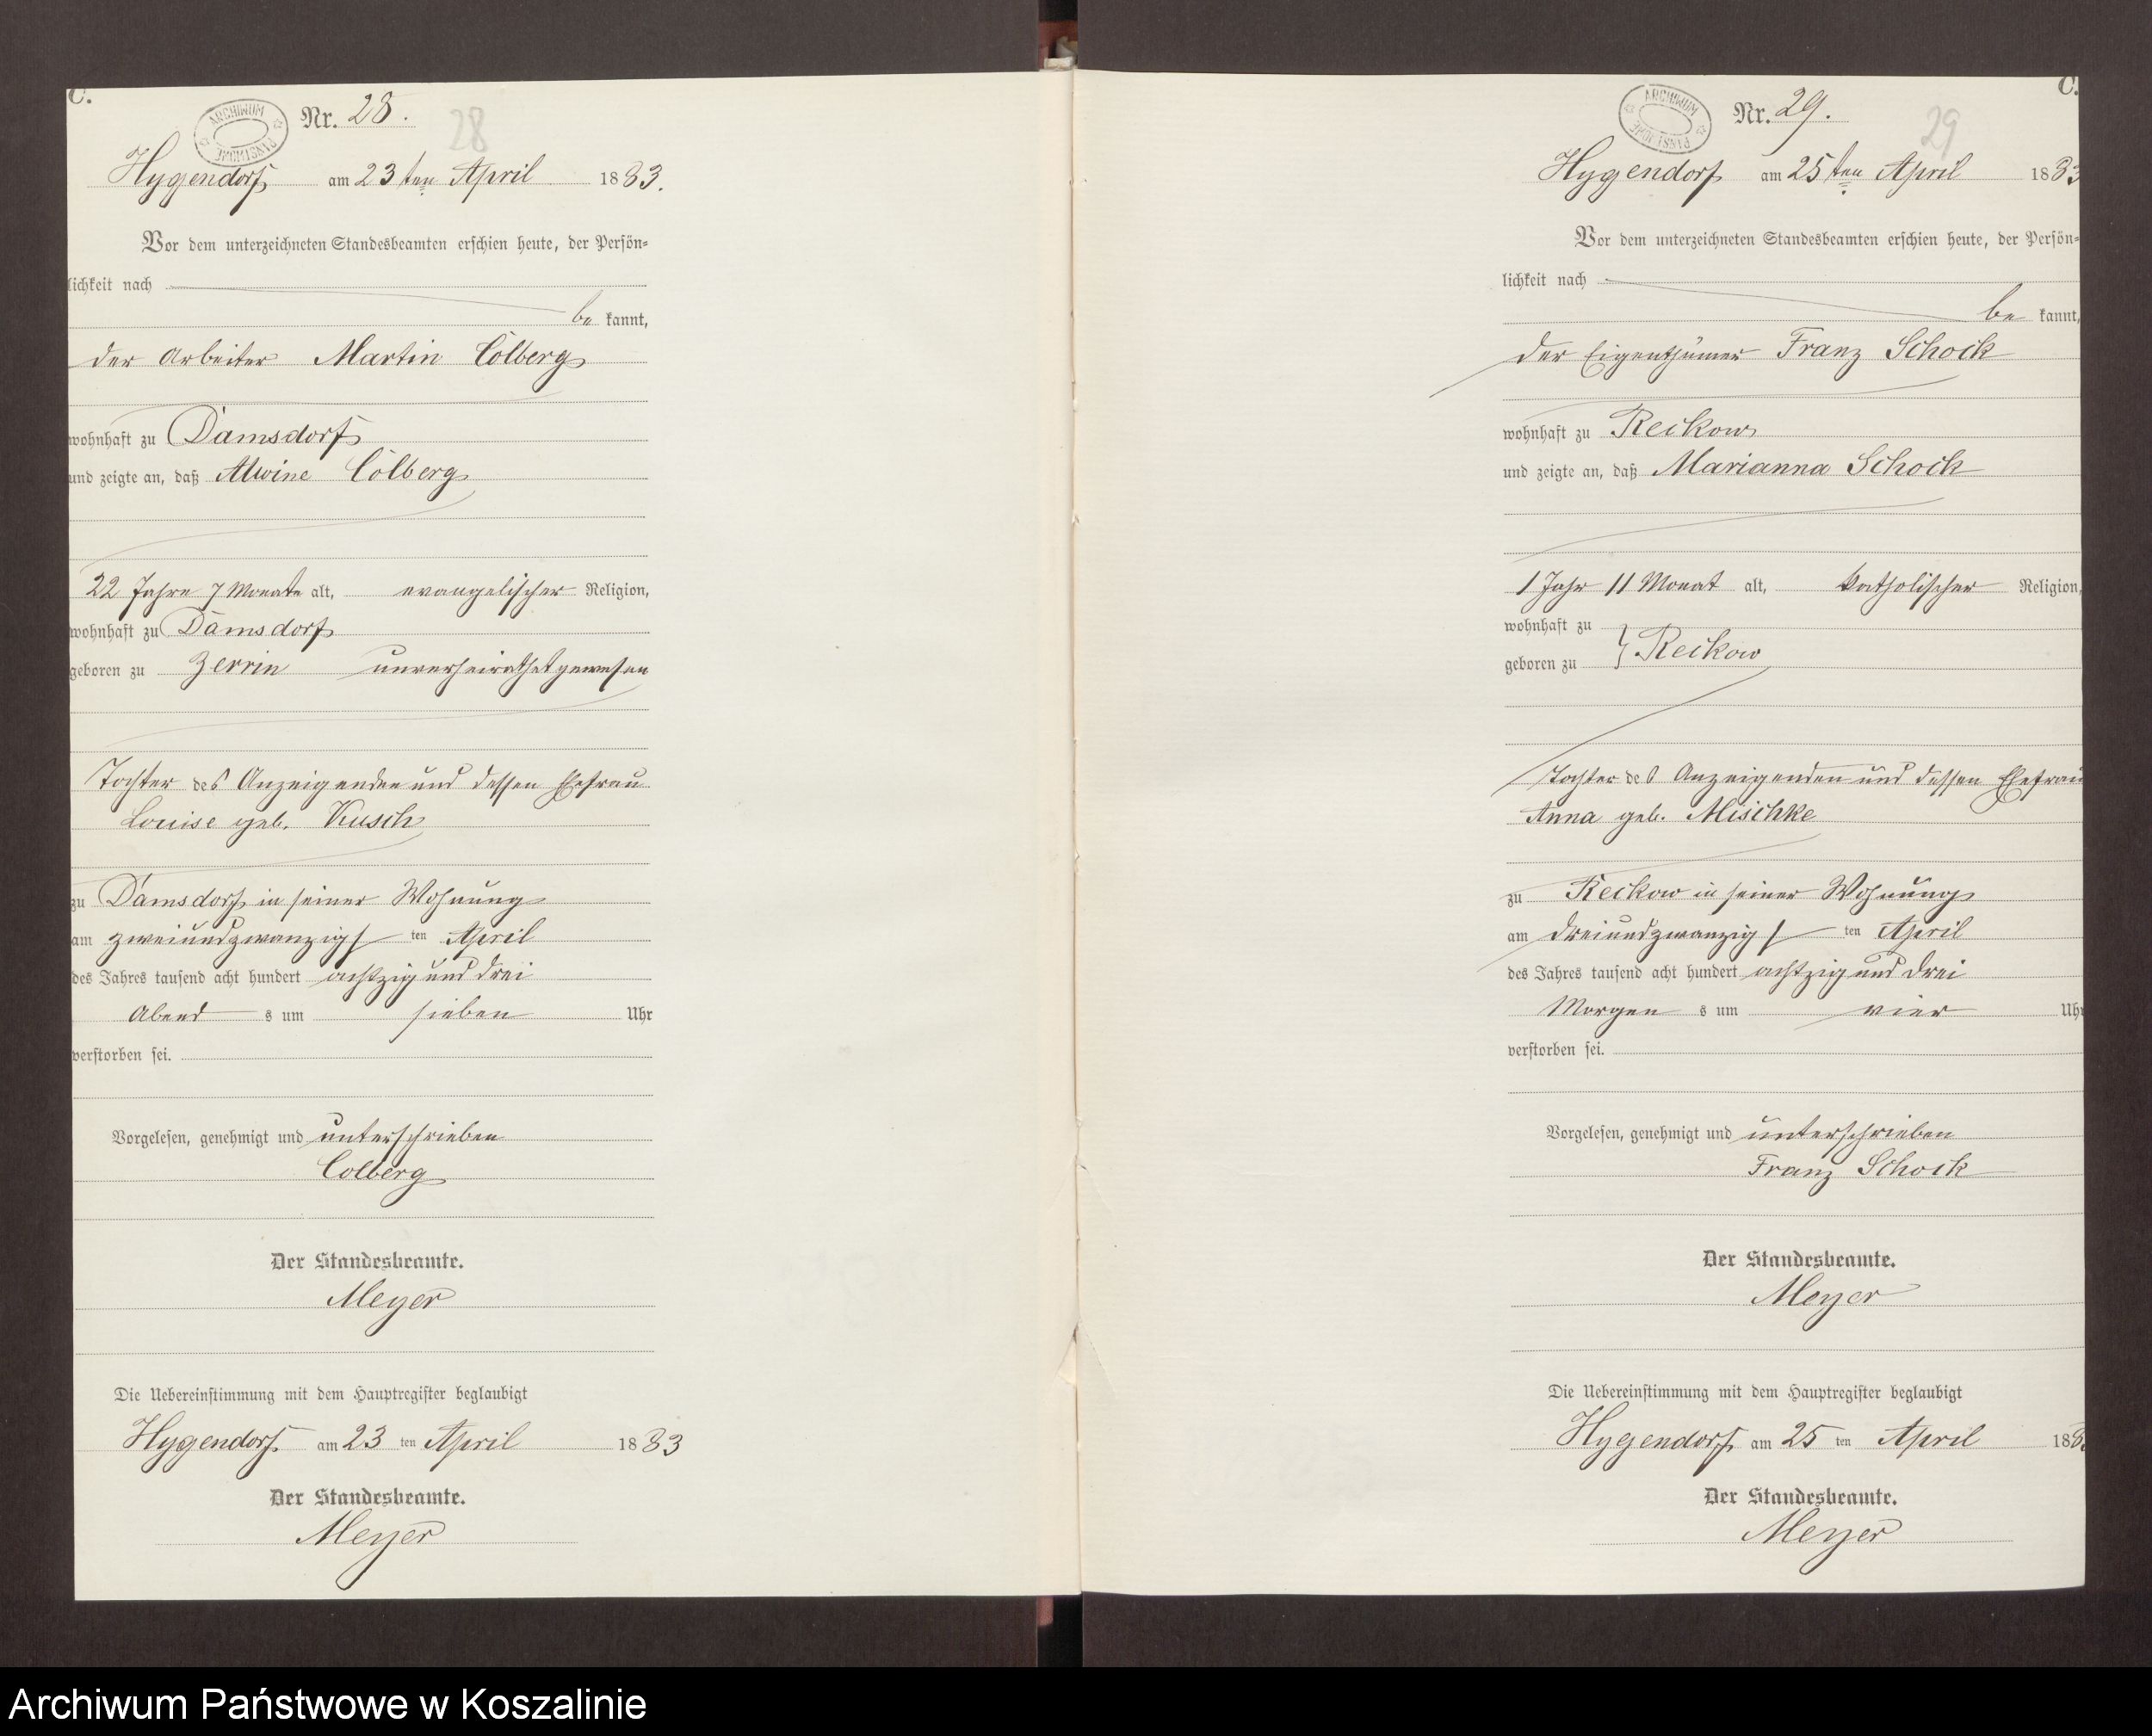 C.
ARCHIWUM PAŃSTWOWE
Nr. 28.
28
Hygendorf am 23ten April 1883.
Vor dem unterzeichneten Standesbeamten erschien heute, der Persön=
lichkeit nach
be kannt,
der Arbeiter Martin Colberg
wohnhaft zu Damsdorf
und zeigte an, daß Alwine Colberg
22 Jahre 7 Monate alt, evangelischer Religion,
wohnhaft zu Damsdorf
geboren zu Zerrin unverheirathet gewesen
Tochter des Anzeigenden und dessen Ehefrau
Louise geb. Kusch
zu Damsdorf in seiner Wohnung
am zweiundzwanzigsten April
des Jahres tausend acht hundert achtzig und drei
Abend s um sieben Uhr
verstorben sei.
Vorgelesen, genehmigt und unterschrieben
Colberg
Der Standesbeamte.
Meyer
Die Uebereinstimmung mit dem Hauptregister beglaubigt
Hygendorf am 23 ten April 1883
Der Standesbeamte.
Meyer
C.
ARCHIWUM PAŃSTWOWE
Nr. 29.
29
Hygendorf am 25ten April 1883
Vor dem unterzeichneten Standesbeamten erschien heute, der Persön=
lichkeit nach
be kannt,
der Eigenthümer Franz Schock
wohnhaft zu Reckow
und zeigte an, daß Marianna Schock
1 Jahr 11 Monat alt, katholischer Religion,
wohnhaft zu
geboren zu } Reckow
Tochter des Anzeigenden und dessen Ehefrau
Anna geb. Mischke
zu Reckow in seiner Wohnung
am dreiundzwanzigsten April
des Jahres tausend acht hundert achtzig und drei
Morgen s um vier Uhr
verstorben sei.
Vorgelesen, genehmigt und unterschrieben
Franz Schock
Der Standesbeamte.
Meyer
Die Uebereinstimmung mit dem Hauptregister beglaubigt
Hygendorf am 25 ten April 188
Der Standesbeamte.
Meyer
Archiwum Państwowe w Koszalinie